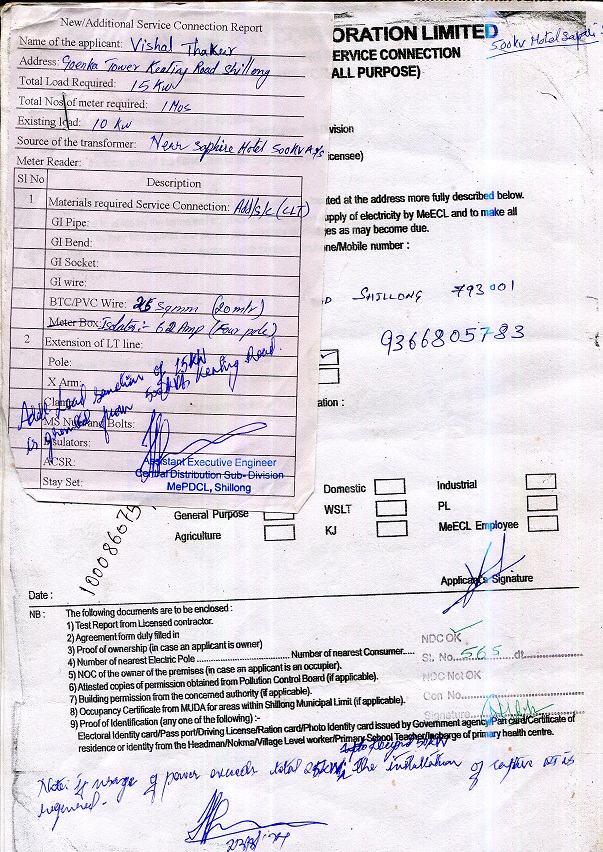 New/Additional Service Connection Report
Name of the applicant: Vishal Thakur
Address: Goenka Tower Keating Road Shillong
Total Load Required: 15 KW
Total Nos of meter required: 1 Nos
Existing load: 10 KW
Source of the transformer: Near Saphire Hotel 500KVA
Meter Reader:
Sl No Description
1 Materials required Service Connection: Add/s/c (CLT)
GI Pipe:
GI Bend:
GI Socket:
GI wire:
BTC/PVC Wire: 25 sqmm (20mtr)
Meter Box: Isolator:- 62 Amp (Four pole)
2 Extension of LT line:
Pole:
X Arm:
Clamp
MS Nuts and Bolts:
Insulators:
ACSR:
Stay Set:
Addl. Load sanction of 15KW
is granted from 500KVA Keating Road.
Assistant Executive Engineer
Central Distribution Sub-Division
MePDCL, Shillong
ORATION LIMITED
500KV Hotel
SERVICE CONNECTION
ALL PURPOSE)
vision
icensee)
ted at the address more fully described below.
upply of electricity by MeECL and to make all
ges as may become due.
one/Mobile number :
SHILLONG 793001
9366805783
ation :
Domestic Industrial
General Purpose WSLT PL
Agriculture KJ MeECL Employee
Date :
Applicant's Signature
NB : The following documents are to be enclosed :
1) Test Report from Licensed contractor.
2) Agreement form duly filled in
3) Proof of ownership (in case an applicant is owner)
4) Number of nearest Electric Pole ........................ Number of nearest Consumer.....
5) NOC of the owner of the premises (in case an applicant is an occupier).
6) Attested copies of permission obtained from Pollution Control Board (if applicable).
7) Building permission from the concerned authority (if applicable).
8) Occupancy Certificate from MUDA for areas within Shillong Municipal Limit (if applicable).
9) Proof of Identification (any one of the following) :-
Electoral Identity card/Pass port/Driving License/Ration card/Photo Identity card issued by Government agency/Pan card/Certificate of
residence or identity from the Headman/Nokma/Village Level worker/Primary School Teacher/Incharge of primary health centre.
NDC OK
Sl. No. 565 dt.
NDC Not OK
Con No.
Signature
Note: If usage of power exceeds total the installation of captive is
required.